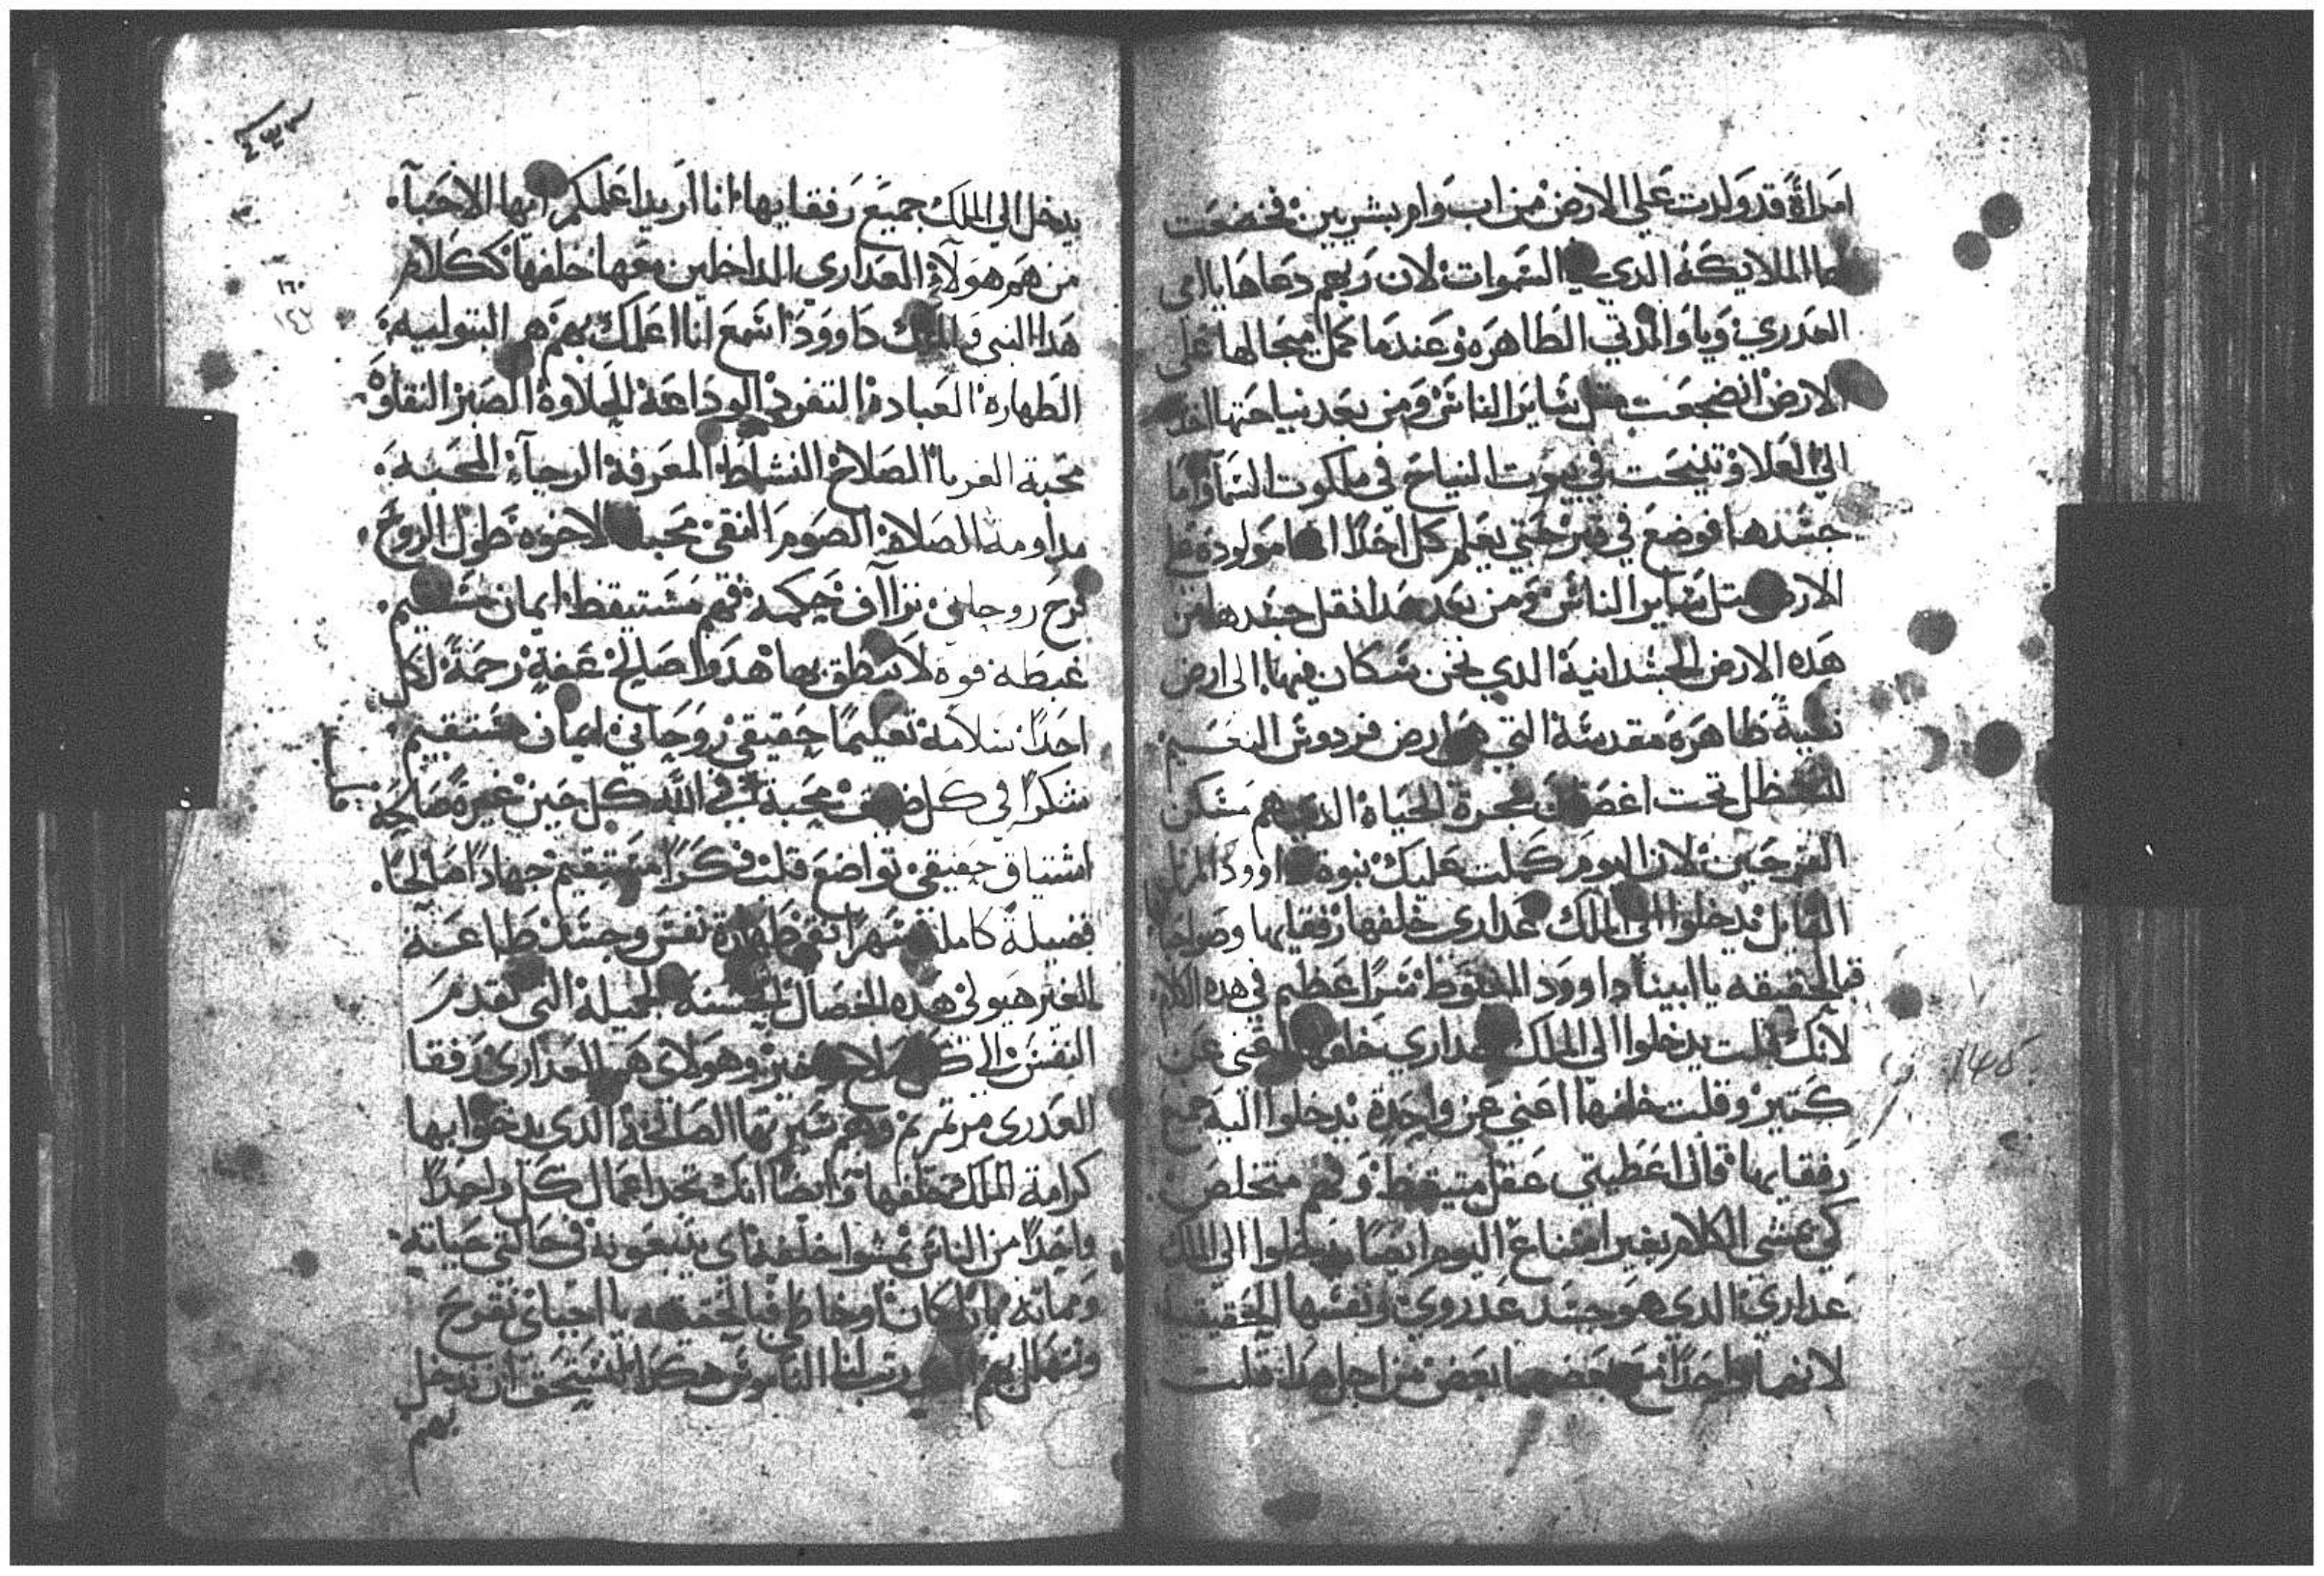 امراة قد ولدت علي الارض من اب وام بشريين فخضعت
لها الملايكة الدي في السموات لان ربهم دعاها يا امي
العدري ويا والدتي الطاهره وعندما كمل ميجالها علي
الارض انضجعت متل ساير الناس ومن بعد نياحتها
الي العلا وتنيحت في بيوت النياح في ملكوت السما واما
جسدها فوضع في قبر حتي يعلم كل احدا انها مولوده علي
الارض متل ساير الناس ومن بعد هدا نقل جسدها من
هده الارض الجسدانية الدي نحن سكان فيها الي ارض
نقية طاهره مقدسة التي هي ارض فردوس النعيم
تحت اغصان شجرة الحياة الدي هم مسكن
الفرحين لان اليوم كملت عليك نبوة داوود المرتل
القايل يدخلوا الي الملك عداري خلفها رفقايها وصواحبا
فبالحقيقه يا ابينا داوود المغبوط سرا عظيم في هده الكلام
لانك قلت يدخلوا الي الملك عداري خلفها اعني عن
كتير وقلت خلفها اعني عن واحدة يدخلوا اليه جميع
رفقايها فان اعطيتي عقل متيقظ وفهم متخلص
كي نمشي الكلام بغير امتناع اليوم ايضا يدخلوا الي الملك
عداري الدي هو جسد عدروي ونفسها الحقيقية
لانهما واحدا مع بعضهما بعض من اجل هدا قلت
١٤٥
٤٣٣
يدخل الي الملك جميع رفقايها انا اريد اعلمكم ايها الاحبآ
من هم هولاء العداري الداخلين معها خلفها ككلام
١٦٠
هدا النبي والملك داوود اسمع انا اعلمك بهم هم البتولية
الطهارة العبادة التفرد الوداعة الحلاوة الصبر النقاوة
محبة الغربا الصلاح النشاط المعرفة الرجآء المحبة
مداومة الصلاة الصوم النقي محبة الاخوه طول الروح
فرح روحاني تراآف حكمة فهم مستيقظ ايمان مستقيم
غبطة قوه لا ينطق بها هدوا صالح عفة رحمة لكل
احدا سلامة تعليما حقيقي روحاني ايمان مستقيم
شكرا في كل ضيق محبة في الله كل حين غيرة صالحة
اشتياق حقيقي تواضع قلب فكرا مستقيم جهادا صالحا
فضيلة كاملة سهرا نقي طهارة نفس وجسد طاعة
الغير هيولي هده الخصال الحسنة الجميلة التي تقدم
النفس الي كل صلاح وخير وهولاي هم العداري رفقا
العدري مرتمريم وهم سيرتها الصالحة الدي يدخلوا بها
كرامة الملك خلفها وايضا انك تجد اعمال كل واحدا
واحدا من الناس يمشوا خلفه اي يتبعونه في حالتي حياته
ومماته بارا كان او خاطي فبالحقيقه يا احباي نفرح
ونتهلل بهم الدي رتب لنا الناموس هكدا لنستحق ان ندخل
بهم